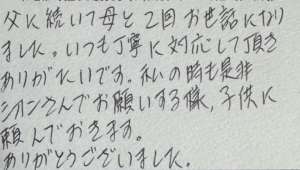 父に続いて母と2回お世話になり
ました。いつも丁寧に対応して頂き
ありがたいです。私の時も是非
シオンさんでお願いする様、子供に
頼んでおきます。
ありがとうございました。